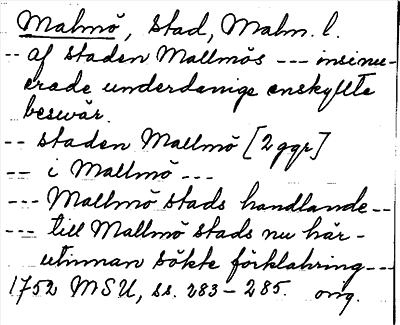 Malmö, stad, Malm. l.
-- af staden Mallmös --- insinu-
erade underdanige enskyllte
besvär.
-- staden Mallmö [2 ggr]
-- i Mallmö ---
--- Mallmö stads handlande --
--- till Mallmö stads nu här-
utinnan sökte förklahring ---
1752 MSU, ss. 283-285. orig.